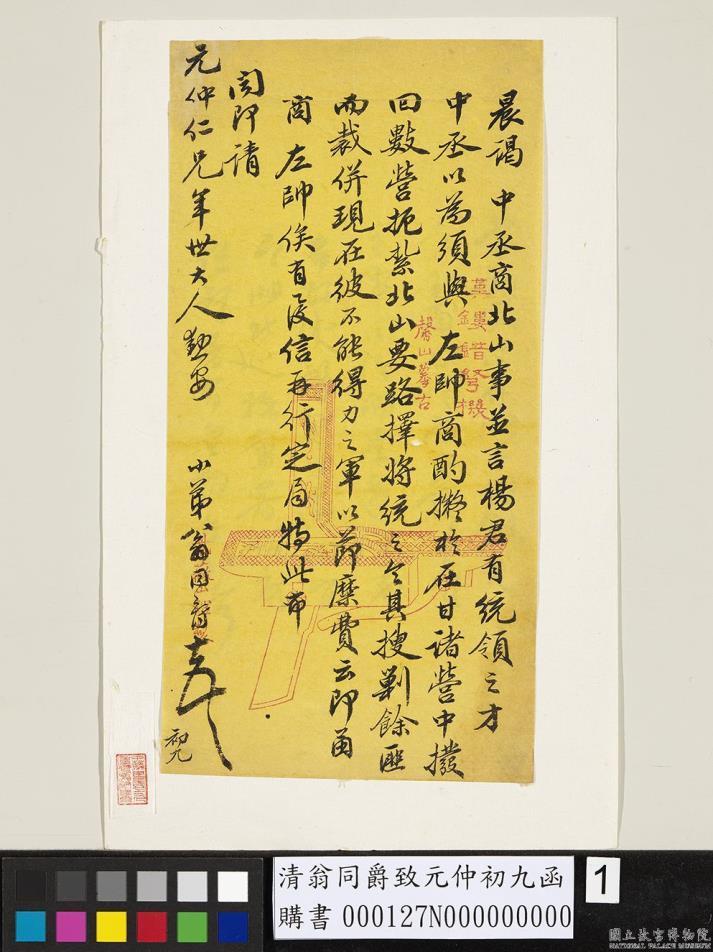 晨謁 中丞商北山事並言楊君有統領之才
中丞以為須與 左帥商酌擬於在甘諸營中撥
回數營扼紮北山要路擇將統之令其搜剿餘匪
而裁併現在彼不能得力之軍以節糜費云即函
商 左帥俟有復信再行定局特此布
聞即請
元仲仁兄年世大人勛安
小弟翁同爵
初九
清翁同爵致元仲初九函
購書 000127N000000000
1
國立故宮博物院
NATIONAL PALACE MUSEUM